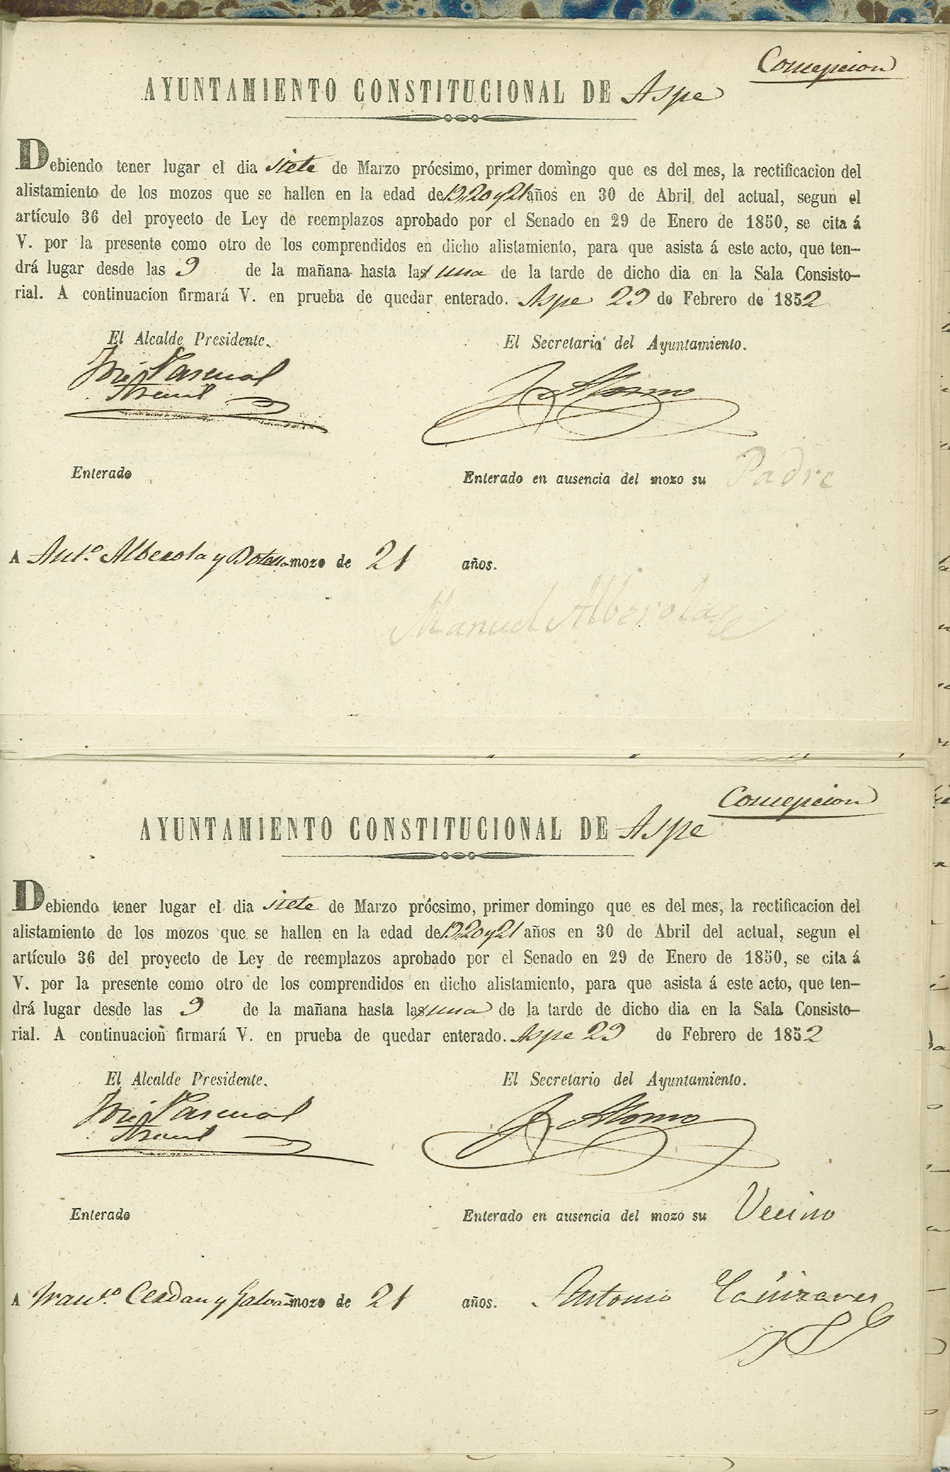 Concepcion
AYUNTAMIENTO CONSTITUCIONAL DE Aspe
Debiendo tener lugar el dia siete de Marzo prócsimo, primer domingo que es del mes, la rectificacion del
alistamiento de los mozos que se hallen en la edad de 20 y 21 años en 30 de Abril del actual, segun el
artículo 36 del proyecto de Ley de reemplazos aprobado por el Senado en 29 de Enero de 1850, se cita á
V. por la presente como otro de los comprendidos en dicho alistamiento, para que asista á este acto, que ten-
drá lugar desde las 9 de la mañana hasta las una de la tarde de dicho dia en la Sala Consisto-
rial. A continuacion firmará V. en prueba de quedar enterado. Aspe 29 de Febrero de 1852
El Alcalde Presidente. El Secretario del Ayuntamiento.
José Pascual
Alonso
Enterado Enterado en ausencia del mozo su Padre
A Ant.º Alberola y mozo de 21 años.
Manuel Alberola
Concepcion
AYUNTAMIENTO CONSTITUCIONAL DE Aspe
Debiendo tener lugar el dia siete de Marzo prócsimo, primer domingo que es del mes, la rectificacion del
alistamiento de los mozos que se hallen en la edad de 20 y 21 años en 30 de Abril del actual, segun el
artículo 36 del proyecto de Ley de reemplazos aprobado por el Senado en 29 de Enero de 1850, se cita á
V. por la presente como otro de los comprendidos en dicho alistamiento, para que asista á este acto, que ten-
drá lugar desde las 9 de la mañana hasta las una de la tarde de dicho dia en la Sala Consisto-
rial. A continuacion firmará V. en prueba de quedar enterado. Aspe 29 de Febrero de 1852
El Alcalde Presidente. El Secretario del Ayuntamiento.
José Pascual
Alonso
Enterado Enterado en ausencia del mozo su Vecino
A Fran.co Cerdan y Galvañ mozo de 21 años. Antonio Cañizares